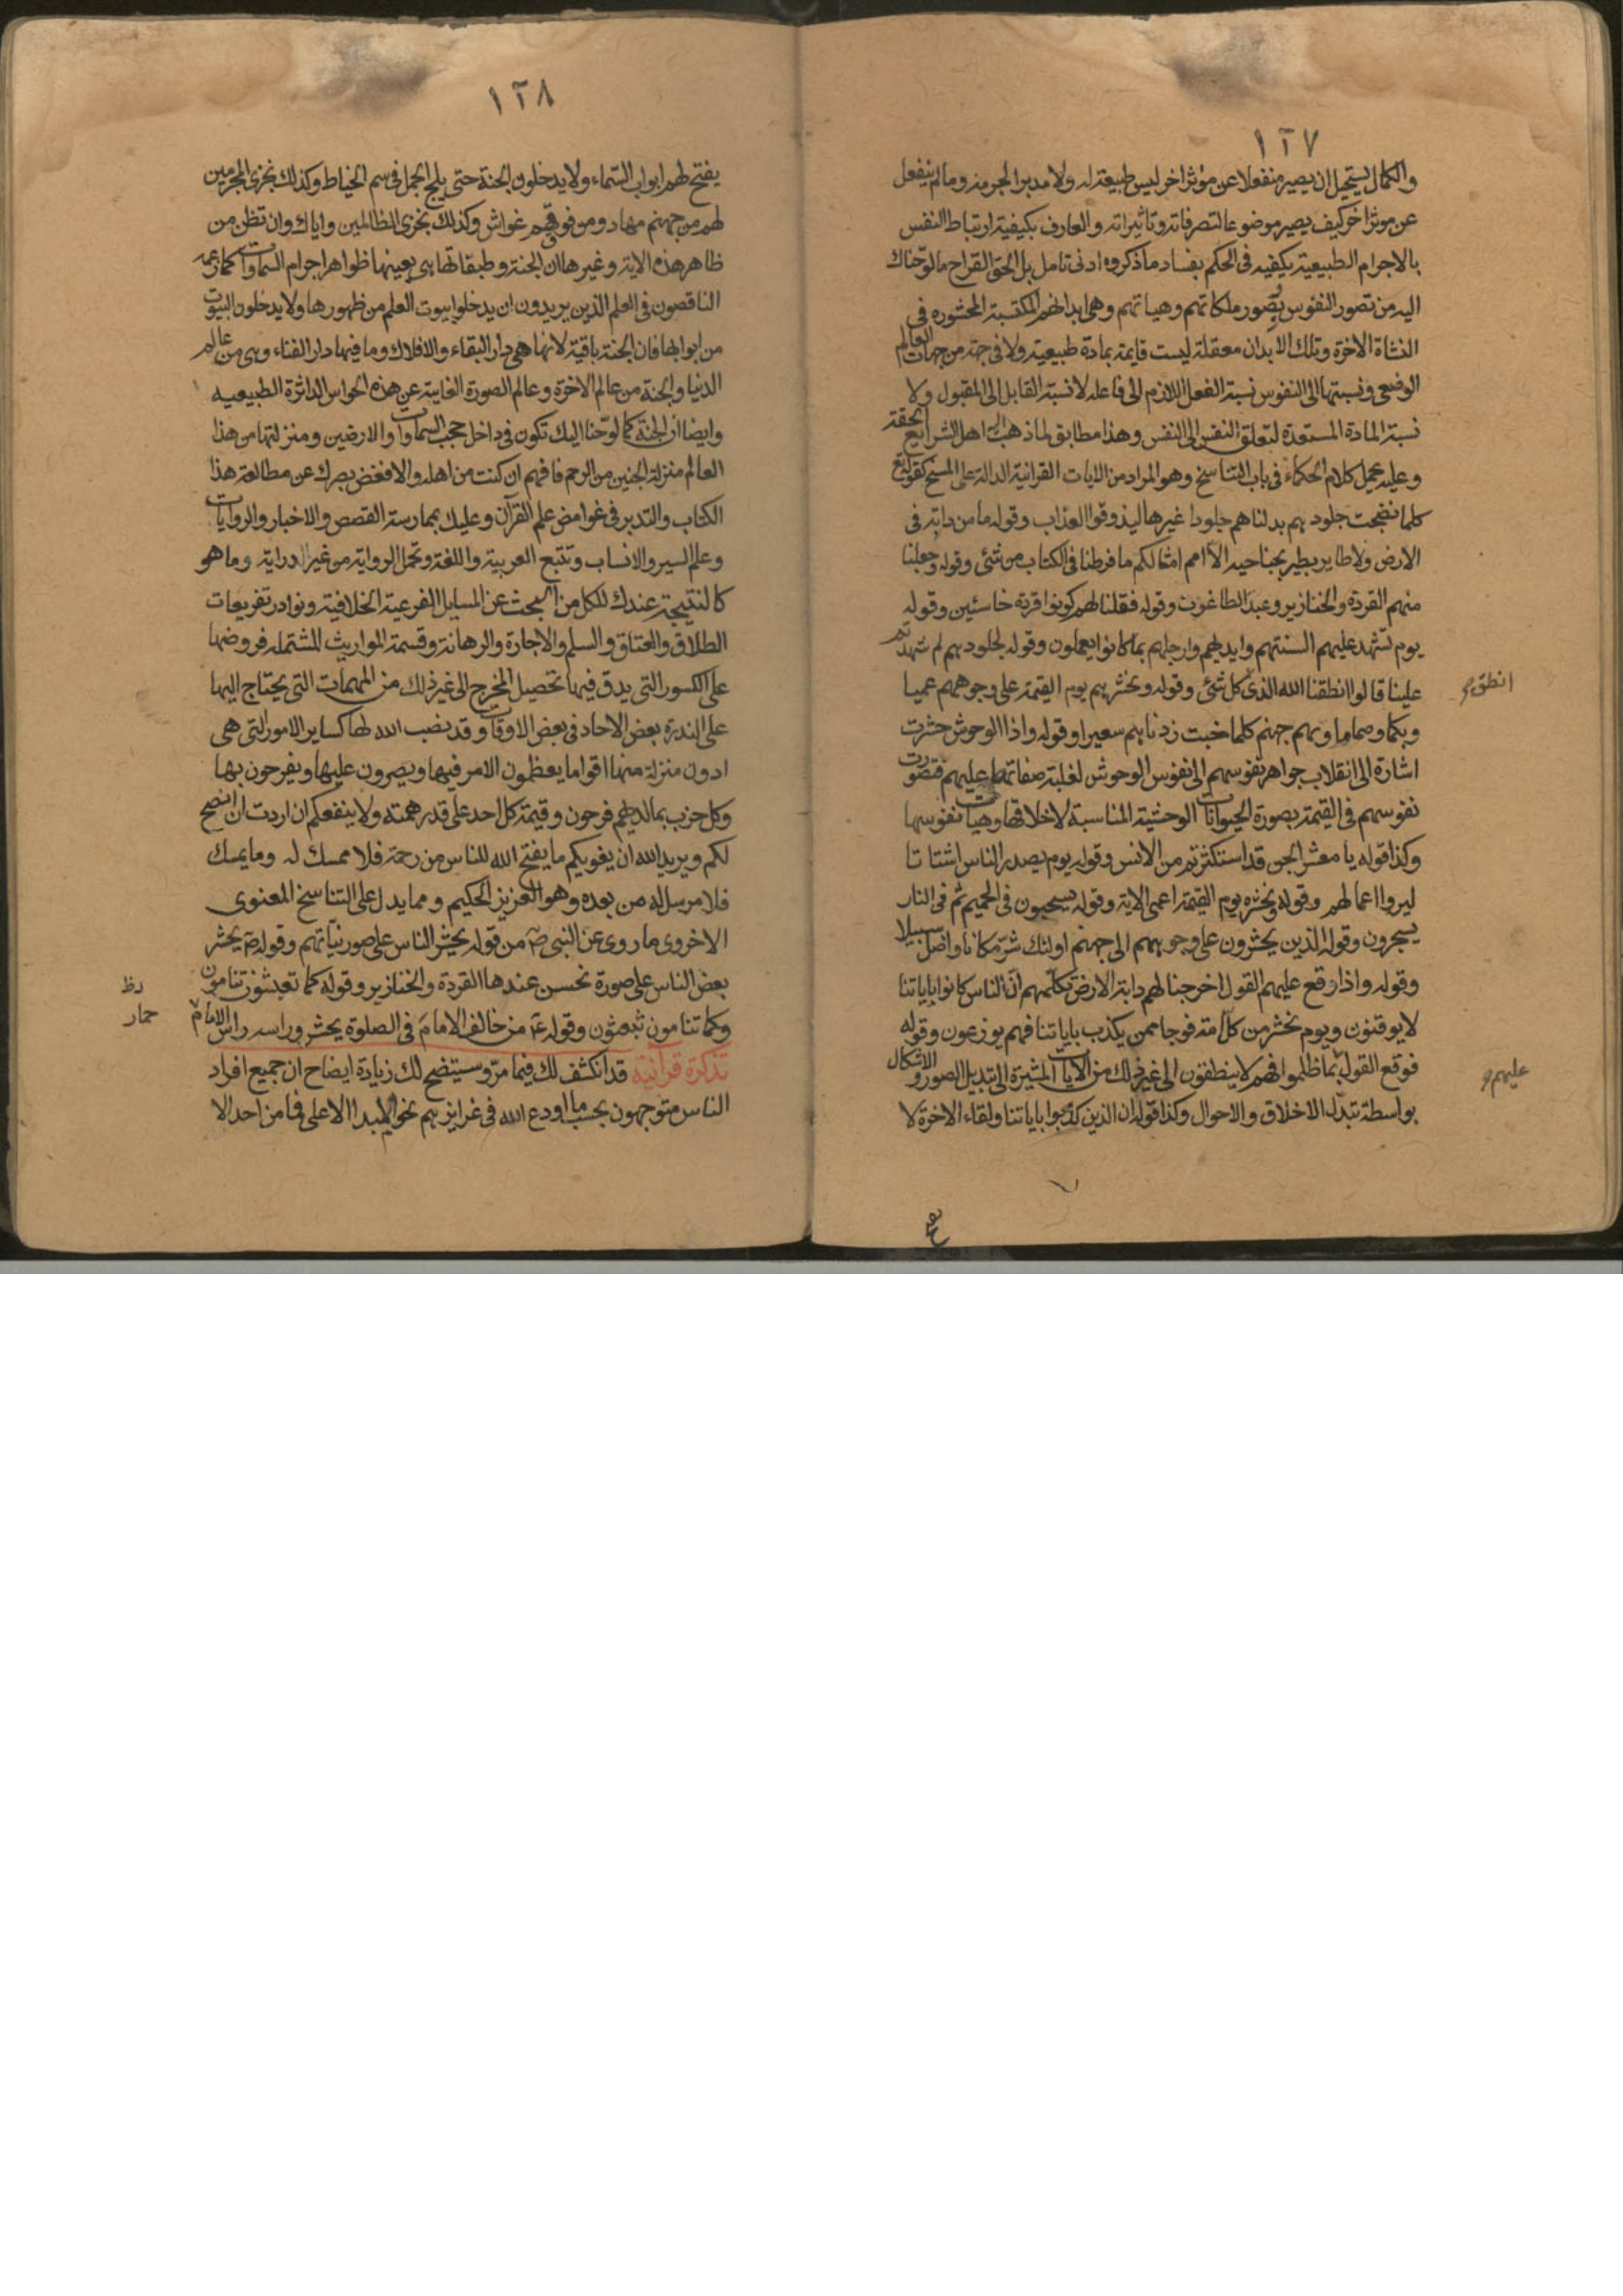 ١٢٧
والكمال يستحيل ان يصير منفعلا عن موثر اخر ليس طبيعة له ولا مدبرا لجرمه وما لم ينفعل
عن موثر اخر كيف يصير موضوعا لتصرفاته وتاثيراته والعارف بكيفية ارتباط النفس
بالاجرام الطبيعية يكفيه فى الحكم بفساد ما ذكروه ادنى تامل بل الحق القراح ما لوحناك
اليه من تصور النفوس بصور ملكاتهم وهياتهم وهى ابدانهم المكتسبة المحشوره فى
النشاة الاخرة وتلك الابدان معقلة ليست قايمة بمادة طبيعية ولا فى جهة من جهات العالم
الوضعى ونسبتها الى النفوس نسبة الفعل اللازم الى فاعله لا نسبة القابل الى المقبول ولا
نسبة المادة المستعدة لتعلق النفس الى النفس وهذا مطابق لما ذهب اليه اهل الشرايع الحقة
وعليه يحمل كلام الحكماء فى باب التناسخ وهو المراد من الايات القرانية الدالة على المسخ كقوله تع
كلما نضجت جلودهم بدلناهم جلودا غيرها ليذوقوا العذاب وقوله ما من دابة فى
الارض ولا طاير يطير بجناحيه الا امم امثالكم ما فرطنا فى الكتاب من شئ وقوله وجعلنا
منهم القردة والخنازير وعبد الطاغوت وقوله فقلنا لهم كونوا قردة خاسئين وقوله
يوم تشهد عليهم السنتهم وايديهم وارجلهم بما كانوا يعملون وقوله لجلودهم لم شهدتم
علينا قالوا انطقنا الله الذى كل شئ وقوله ونحشرهم يوم القيمة على وجوههم عميا
انطق
وبكما وصما ماويهم جهنم كلما خبت زدناهم سعيرا وقوله واذا الوحوش حشرت
اشارة الى انقلاب جواهر نفوسهم الى نفوس الوحوش لغلبة صفاتها عليهم فتصورت
نفوسهم فى القيمة بصورة الحيوانات الوحشية المناسبة لاخلاقها وهيات نفوسها
وكذا قوله يا معشر الجن قد استكثرتم من الانس وقوله يوم يصدر الناس اشتاتا
ليروا اعمالهم وقوله ونحشره يوم القيمة اعمى الاية وقوله يسحبون فى الحميم ثم فى النار
يسجرون وقوله الذين يحشرون على وجوههم الى جهنم اولئك شر مكانا واضل سبيلا
وقوله واذا وقع عليهم القول اخرجنا لهم دابة الارض تكلمهم ان الناس كانوا باياتنا
لا يوقنون ويوم نحشر من كل امة فوجا ممن يكذب باياتنا فهم يوزعون وقوله
فوقع القول بما ظلموا فهم لا ينطقون الى غير ذلك من الايات المشيرة الى تبديل الصور والاشكال
عليهم
بواسطة تبدل الاخلاق والاحوال وكذا قوله ان الذين كذبوا باياتنا ولقاء الاخرة لا
١٢٨
يفتح لهم ابواب السماء ولا يدخلون الجنة حتى يلج الجمل فى سم الخياط وكذلك نجزى المجرمين
لهم من جهنم مهاد ومن فوقهم غواش وكذلك نجزى الظالمين واياك وان تظن من
ظاهر هذه الاية وغيرها ان الجنة وطبقاتها هى بعينها ظواهر اجرام السماوات كما زعمه
الناقصون فى العلم الذين يريدون ان يدخلوا بيوت العلم من ظهورها ولا يدخلون البيوت
من ابوابها فان الجنة باقية لانها هى دار البقاء والافلاك وما فيها دار الفناء وهى من عالم
الدنيا والجنة من عالم الاخرة وعالم الصورة الغايبة عن هذه الحواس الداثرة الطبيعيه
وايضا ان الجنة كما لوحنا اليك تكون فى داخل حجب السماوات والارضين ومنزلتها من هذا
العالم منزلة الجنين من الرحم فافهم ان كنت من اهله والا فغض بصرك عن مطالعة هذا
الكتاب والتدبر فى غوامض علم القرآن وعليك بممارسة القصص والاخبار والروايات
وعلم السير والانساب وتتبع العربية واللغة وتحمل الرواية من غير الدراية وما هو
كالنتيجة عندك للكل من البحث عن المسايل الفرعية الخلافية ونوادر تفريعات
الطلاق والعتاق والسلم والاجارة والرهانة وقسمة المواريث المشتملة فروضها
على الكسور التى يدق فيها تحصيل المخرج الى غير ذلك من المهمات التى يحتاج اليها
على الندرة بعض الاحاد فى بعض الاوقات وقد نصب الله لها كساير الامور التى هى
ادون منزلة منها اقواما يعظمون الامر فيها ويصرون عليها ويفرحون بها
وكل حزب بما لديهم فرحون وقيمة كل احد على قدر همته ولا ينفعكم ان اردت ان انصح
لكم ويريد الله ان يغويكم ما يفتح الله للناس من رحمة فلا ممسك له وما يمسك
فلا مرسل له من بعده وهو العزيز الحكيم ومما يدل على التناسخ المعنوى
الاخروى ما روى عن النبى ص من قوله يحشر الناس على صور نياتهم وقوله ص يحشر
بعض الناس على صورة تحسن عندها القردة والخنازير وقوله كما تعيشون تنامون
وكما تنامون تبعثون وقوله ع من خالف الامام فى الصلوة يحشر وراسه راس الامام
حمار
تذكرة قرآنية قد انكشف لك فيما مر وسيتضح لك زيادة ايضاح ان جميع افراد
الناس متوجهون بحسب ما اودع الله فى غرايزهم نحو المبدا الاعلى فما من احد الا